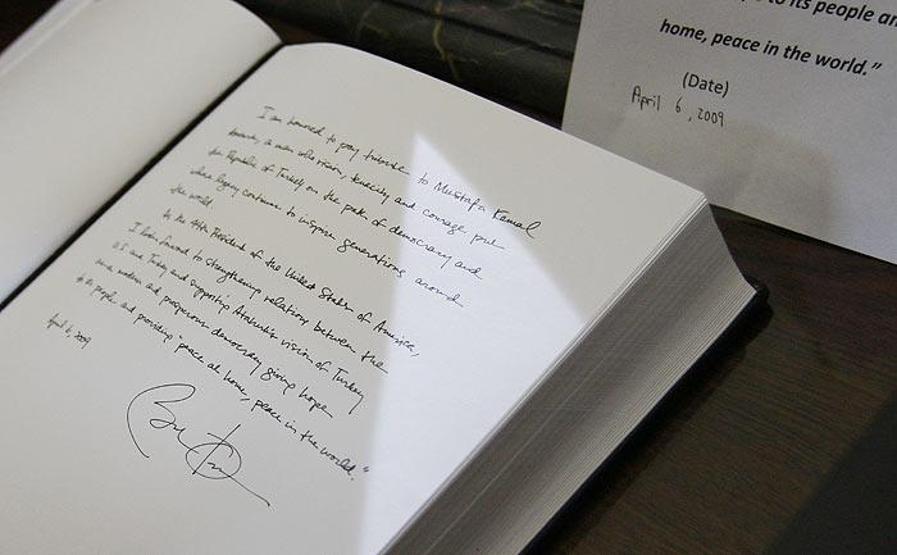 I am honored to pay tribute to Mustafa Kemal
Ataturk, a man whose vision, tenacity and courage put
the Republic of Turkey on the path of democracy and
whose legacy continues to inspire generations around
the world.
As the 44th President of the United States of America,
I look forward to strengthening relations between the
U.S. and Turkey and supporting Ataturk's vision of Turkey
as a modern and prosperous democracy giving hope
to its people and providing "peace at home, peace in the world."
April 6, 2009
to its people an
home, peace in the world.”
(Date)
April 6, 2009